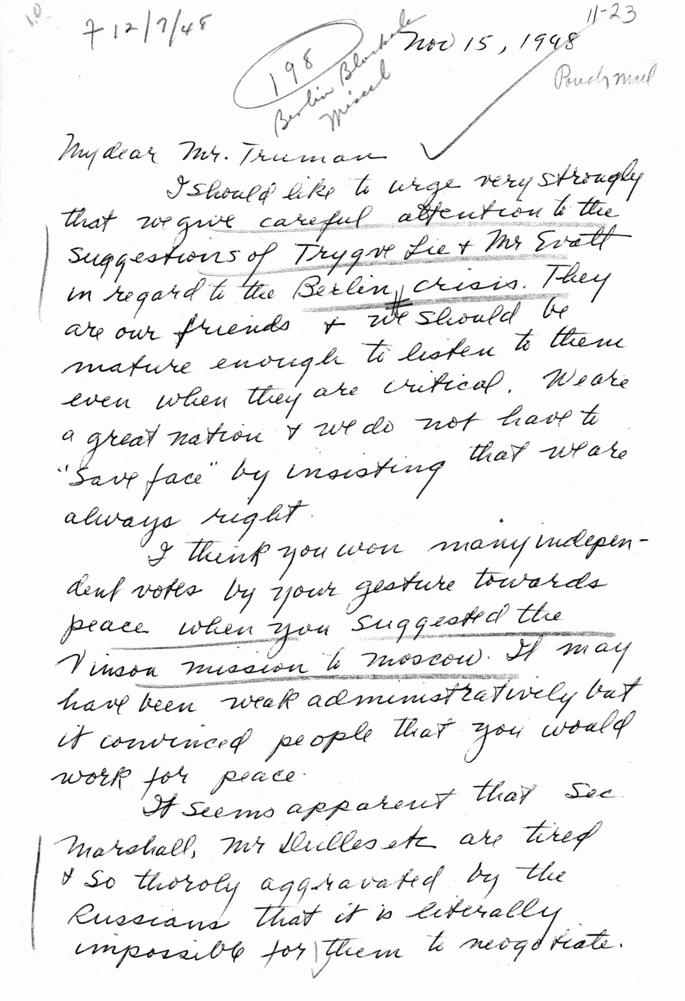 7 12/7/48
11-23
198
Berlin Blockade
Miscel
Nov 15, 1948
My dear Mr. Truman
I should like to urge very strongly
that we give careful attention to the
suggestions of Trygve Lie & Mr Evatt
in regard to the Berlin crisis. They
are our friends & we should be
mature enough to listen to them
even when they are critical. We are
a great nation & we do not have to
"save face" by insisting that we are
always right.
I think you won many indepen-
dent votes by your gesture towards
peace when you suggested the
Vinson mission to Moscow. It may
have been weak administratively but
it convinced people that you would
work for peace.
It seems apparent that Sec
Marshall, Mr Dulles etc are tired
& so thoroly aggravated by the
Russians that it is literally
impossible for them to neogotiate.